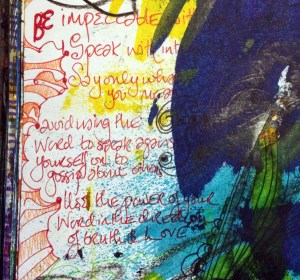 BE impeccable with
• Speak with int
• Say only what
you mean
• avoid using the
Word to speak agains
yourself or to
gossip about others
• Use the power of your
Word in the direction
of truth & Love